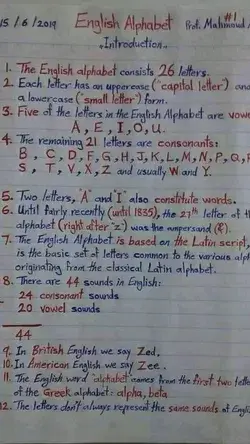 15/6/2019 English Alphabet Prof. Mahmoud #1
"Introduction"
1. The English alphabet consists 26 letters.
2. Each letter has an uppercase ("capital letter") and
a lowercase ("small letter") form.
3. Five of the letters in the English Alphabet are vowe
A, E, I, O, U.
4. The remaining 21 letters are consonants:
B, C, D, F, G, H, J, K, L, M, N, P, Q, R
S, T, V, X, Z and usually W and Y.
5. Two letters, "A" and "I" also constitute words.
6. Until fairly recently (until 1835), the 27th letter of t
alphabet (right after "z") was the ampersand (&).
7. The English Alphabet is based on the Latin script,
is the basic set of letters common to the various alp
originating from the classical Latin alphabet.
8. There are 44 sounds in English:
24 consonant sounds
20 vowel sounds
44
9. In British English we say Zed.
10. In American English we say Zee.
11. The English word "alphabet" comes from the first two lette
of the Greek alphabet: alpha, beta
12. The letters don't always represent the same sounds of Engl